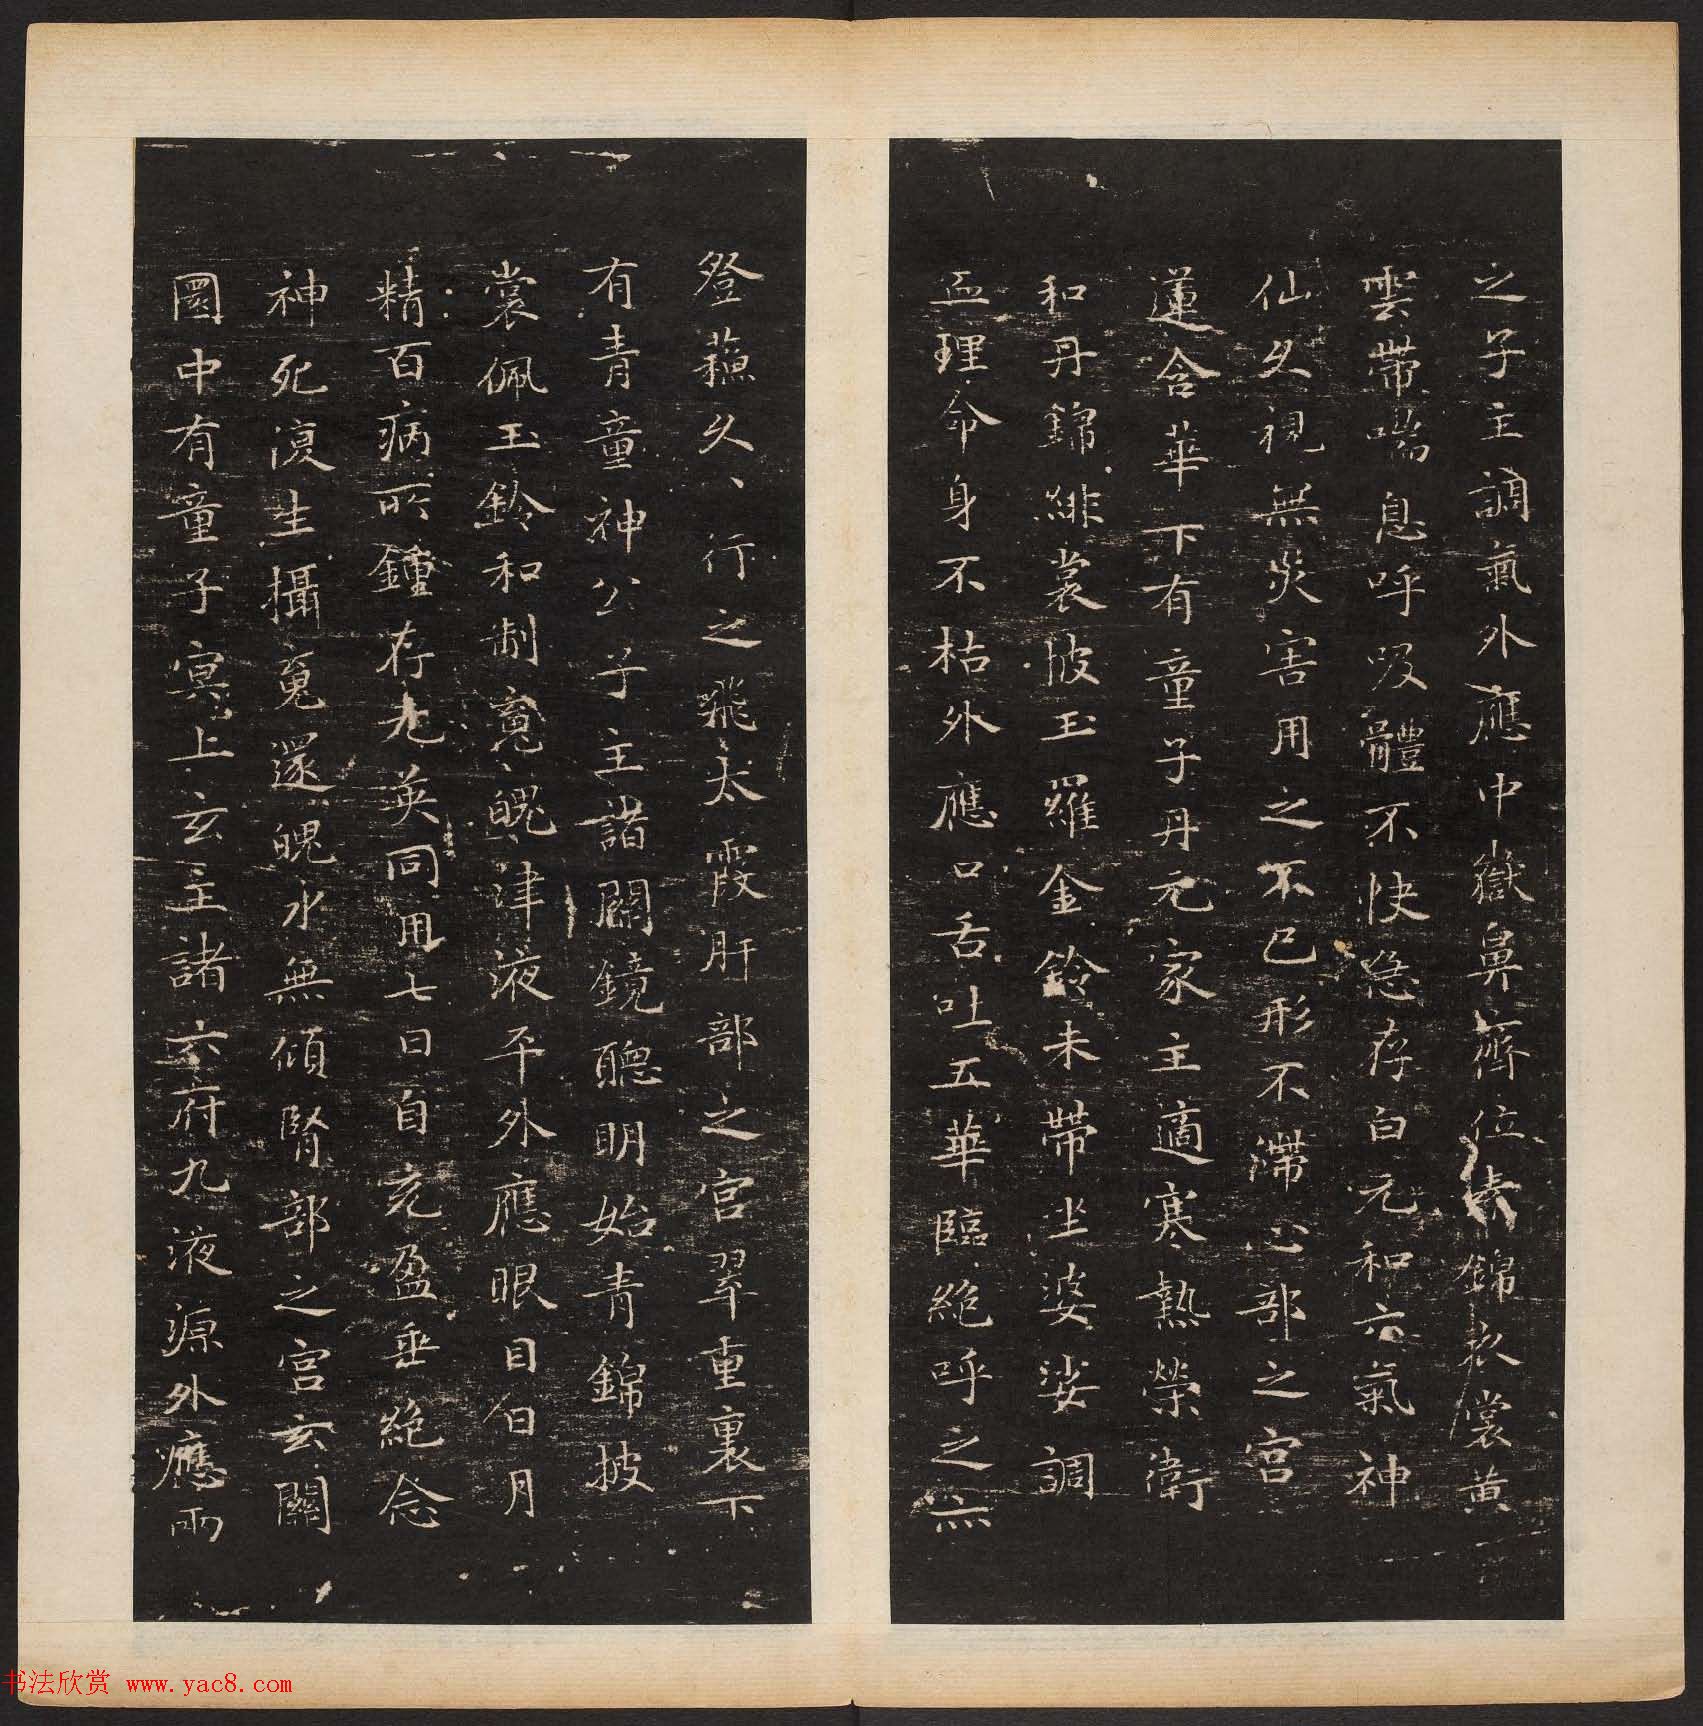 之子主調氣外應中嶽鼻齊位素錦衣裳黃
雲帶喘息呼吸體不快急存白元和六氣神
仙久視無災害用之不已形不滯心部之宮
蓮含華下有童子丹元家主適寒熱榮衛
和丹錦緋裳披玉羅金鈴朱帶坐婆娑調
血理命身不枯外應口舌吐五華臨絕呼之亦
登蘇久〻行之飛太霞肝部之宮翠重裏下
有青童神公子主諸關鏡聰明始青錦披
裳佩玉鈴和制魂魄津液平外應眼目日月
精百病所鍾存无英同用七日自充盈垂絕念
神死復生攝魂還魄永無傾腎部之宮玄闕
圓中有童子冥上玄主諸六府九液源外應兩
书法欣赏 www.yac8.com